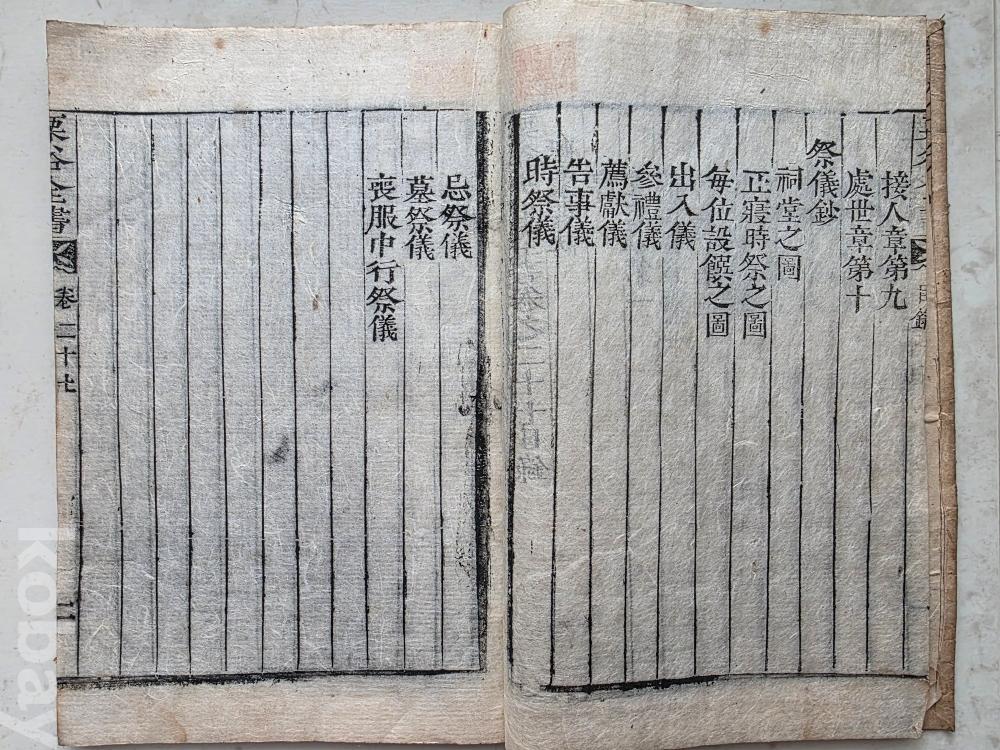 接人章第九
處世章第十
祭儀鈔
祠堂之圖
正寢時祭之圖
每位設饌之圖
出入儀
參禮儀
薦獻儀
告事儀
時祭儀
忌祭儀
墓祭儀
喪服中行祭儀
栗谷全書
卷二十七
kobay